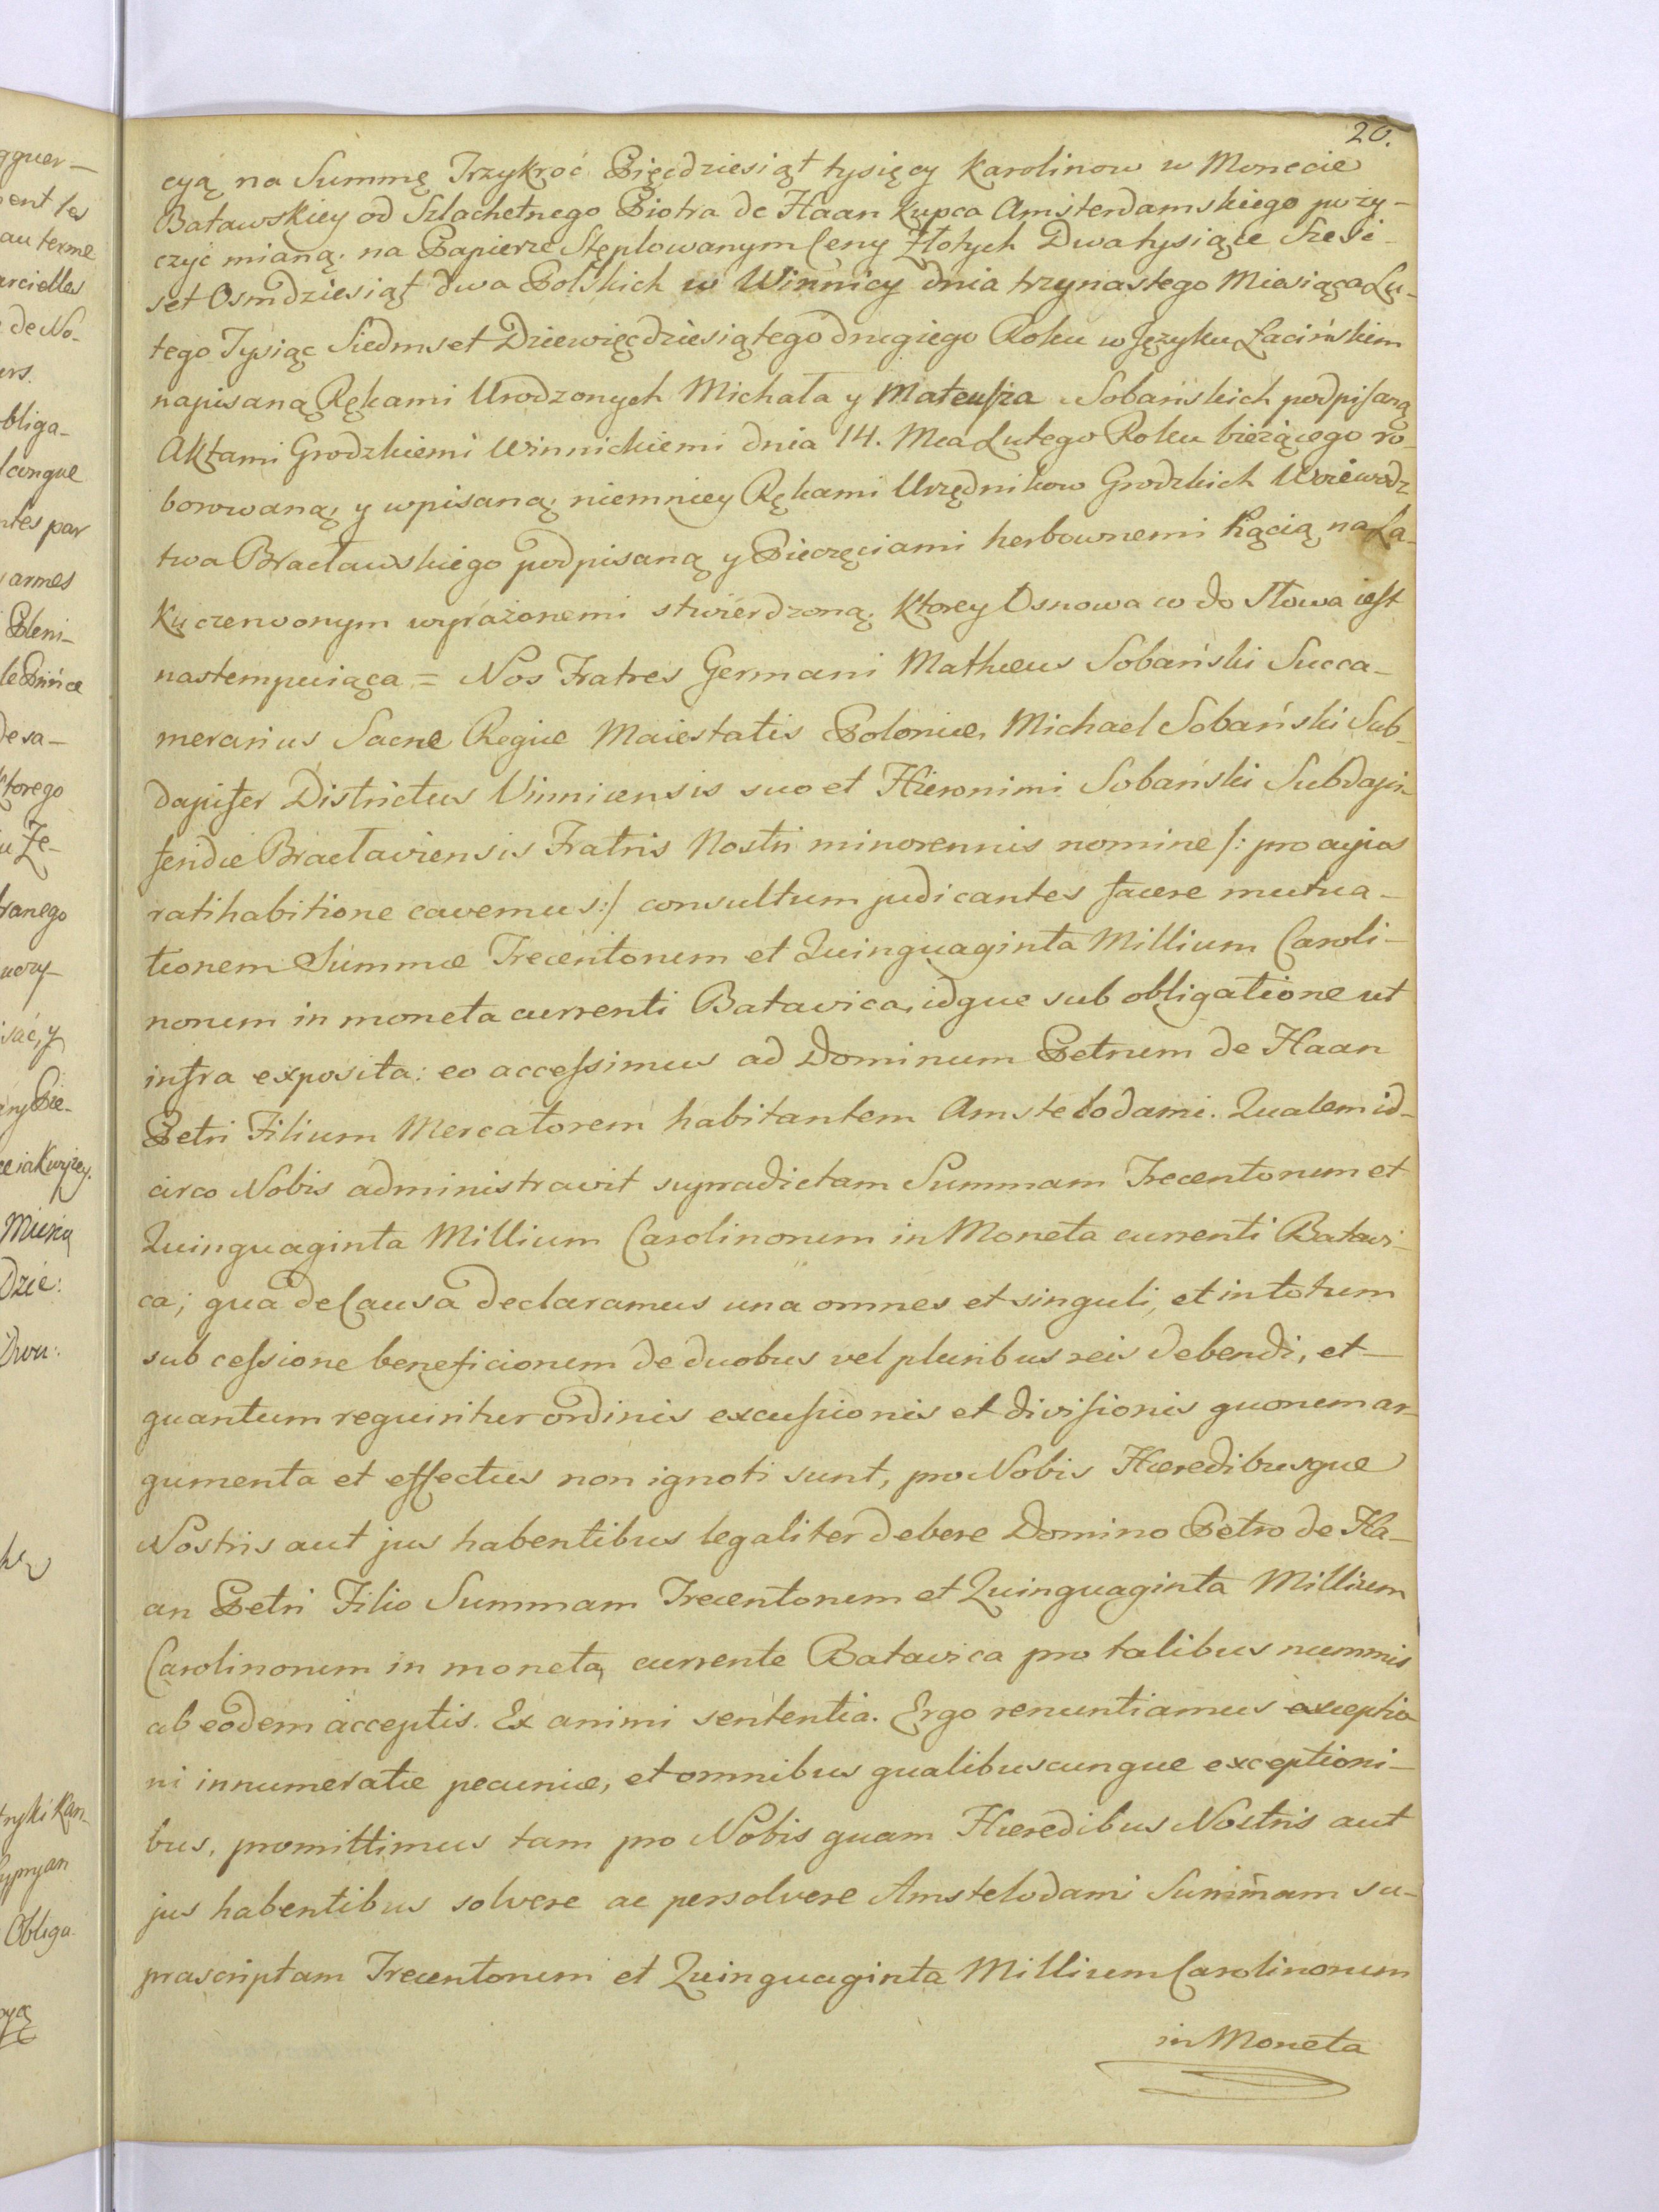 20.
cyą na Summę Trzykroć Pięćdziesiąt tysięcy Karolinow w Monecie
Batawskiey od Szlachetnego Piotra de Haan Kupca Amsterdamskiego poży-
czyć mianą; na Papierze Stęplowanym Ceny Złotych Dwa tysiące Sześć-
set Osmdziesiąt dwa Polskich w Winnicy dnia trzynastego Miesiąca Lu-
tego Tysiąc Siedmset Dziewięcdziesiątego drugiego Roku w Języku Łacińskiem
napisaną Rękami Urodzonych Michała y Mateusza Sobańskich podpisaną
Aktami Grodzkiemi Winnickiemi dnia 14. Mca Lutego Roku bieżącego ro-
borowaną y wpisaną; niemniey Rękami Urzędnikow Grodzkich Woiewodz
twa Bracławskiego podpisaną y Pieczęciami herbownemi na La-
ku czerwonym wyrażonemi stwierdzoną; Ktorey Osnowa co do Słowa iest
nastempuiąca = Nos Fratres Germani Mathæus Sobański Succa-
merarius Sacræ Regiæ Maiestatis Poloniæ, Michael Sobański Sub-
dapifer Districtus Vinnicensis suo et Hieronimi Sobański Subdapi-
feridæ Bracłaviensis Fratris Nostri minorennis nomine /: pro cujus
ratihabitione cavemus :/ consultum judicantes facere mutua-
tionem Summæ Trecentorum et Quinquaginta Millium Caroli-
norum in moneta currenti Batavica, idque sub obligatione ut
infra exposita: eo accessimus ad Dominum Petrum de Haan
Petri Filium Mercatorem habitantem Amstelodami. Qualem id-
circo Nobis administravit supradictam Summam Trecentorum et
Quinquaginta Millium Carolinorum in Moneta currenti Batavi-
ca; qua de Causa declaramus una omnes et singuli, et in totum
sub cessione beneficiorum de duobus vel pluribus reis debendi, et
quantum requiritur ordinis excussionis et divisionis quorum ar-
gumenta et effectus non ignoti sunt, pro Nobis Hæredibusque
Nostris aut jus habentibus legaliter debere Domino Petro de Ha-
an Petri Filio Summam Trecentorum et Quinquaginta Millium
Carolinorum in moneta currente Batavica pro talibus nummis
ab eodem acceptis. Ex animi sententia. Ergo renuntiamus exceptio
ni innumeratæ pecuniæ, et omnibus qualibuscunque exceptioni-
bus, promittimus tam pro Nobis quam Hæredibus Nostris aut
jus habentibus solvere ac persolvere Amstelodami Summam su-
prascriptam Trecentorum et Quinquaginta Millium Carolinorum
in Moneta